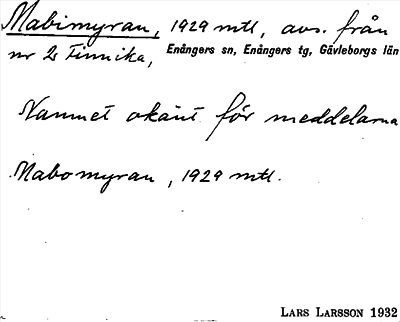 Mabimyran, 1929 mtl, avs. från
nr 2 Finnika, Enångers sn, Enångers tg, Gävleborgs län
Namnet okänt för meddelarna
Mabomyran, 1929 mtl.
LARS LARSSON 1932